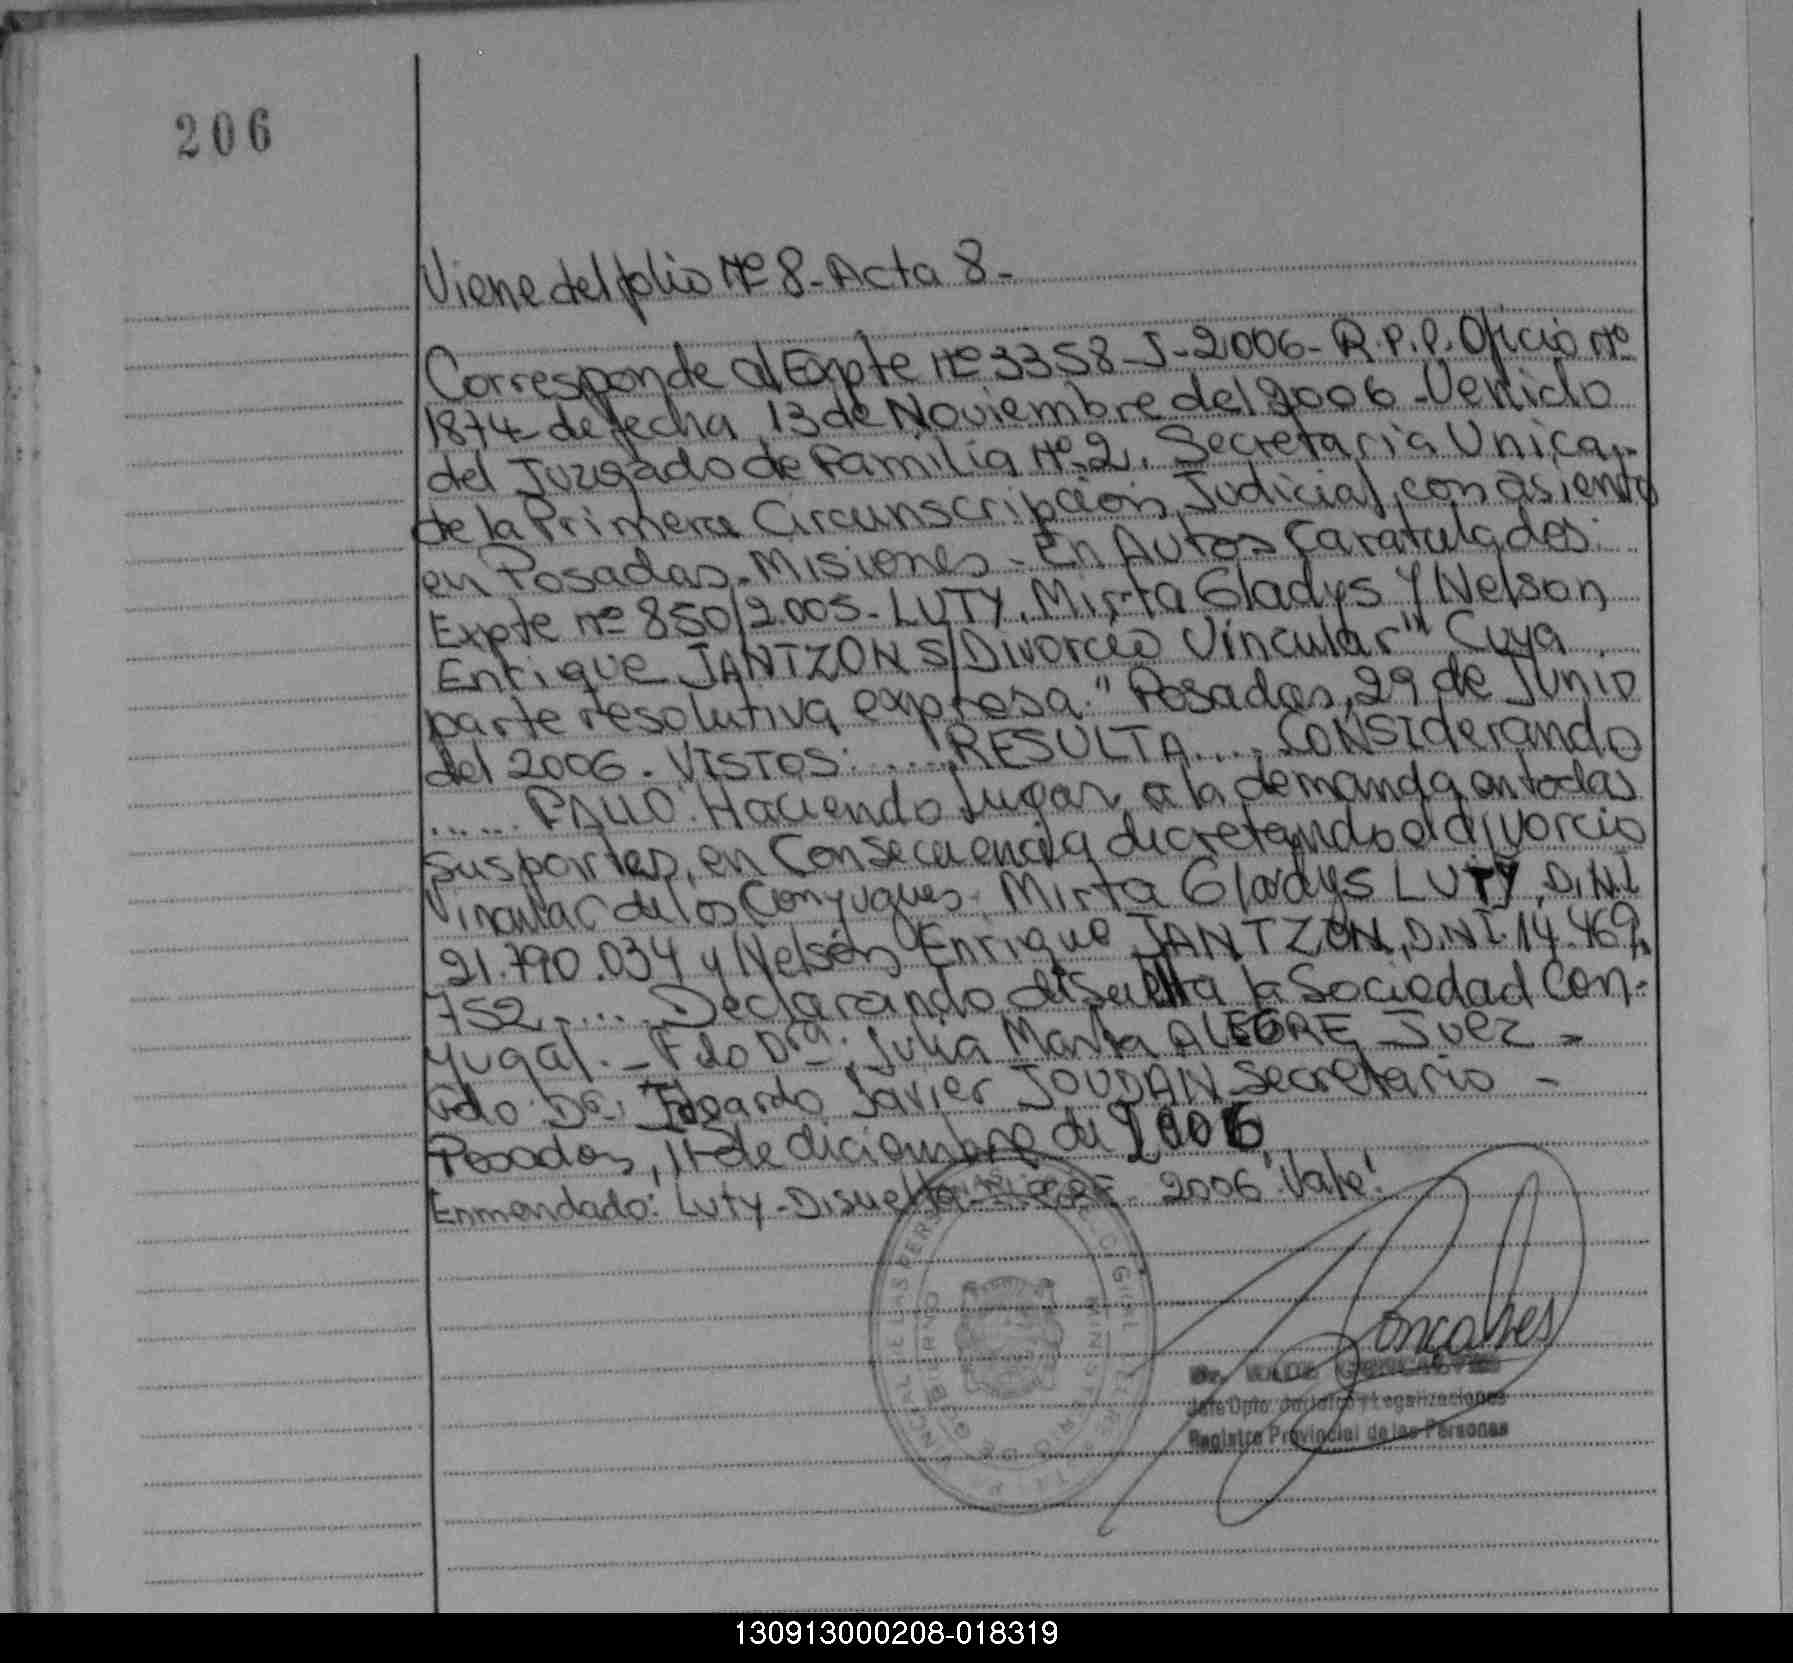 206
Viene del folio Nº 8 - Acta 8 -
Corresponde al Expte Nº 3358 - J - 2006 - R.P.P. Oficio Nº
1874 - de fecha 13 de Noviembre del 2006 - Venido
del Juzgado de Familia Nº 2. Secretaria Unica,
de la Primera Circunscripción Judicial, con asiento
en Posadas - Misiones - En Autos Caratulados:
Expte nº 850/2.005 - LUTY, Mirta Gladys Y Nelson
Enrique JANTZON S/Divorcio Vincular" Cuya
parte resolutiva expresa: "Posadas, 29 de Junio
del 2006. VISTOS: ...... RESULTA ..... CONSIderando
...... FALLO: Haciendo lugar a la demanda en todas
sus partes, en Consecuencia decretando el divorcio
Vincular de los Conyugues Mirta Gladys LUTY, D.N.I
21.790.034 y Nelson Enrique JANTZON, D.NI. 14.469.
752...... Declarando disuelta la Sociedad Con-
yugal. - Fdo Dra. Julia Marta ALEGRE Juez -
Fdo. Dr. Edgardo Javier JOUDAN Secretario -
Posadas, 11 de diciembre de 2006
Enmendado: Luty - Disuelta - 2006 "Vale".
Goncalves
Jefe Dpto. Jurídico y Legalizaciones
Registro Provincial de las Personas
MINISTERIO DE GOBIERNO
130913000208-018319